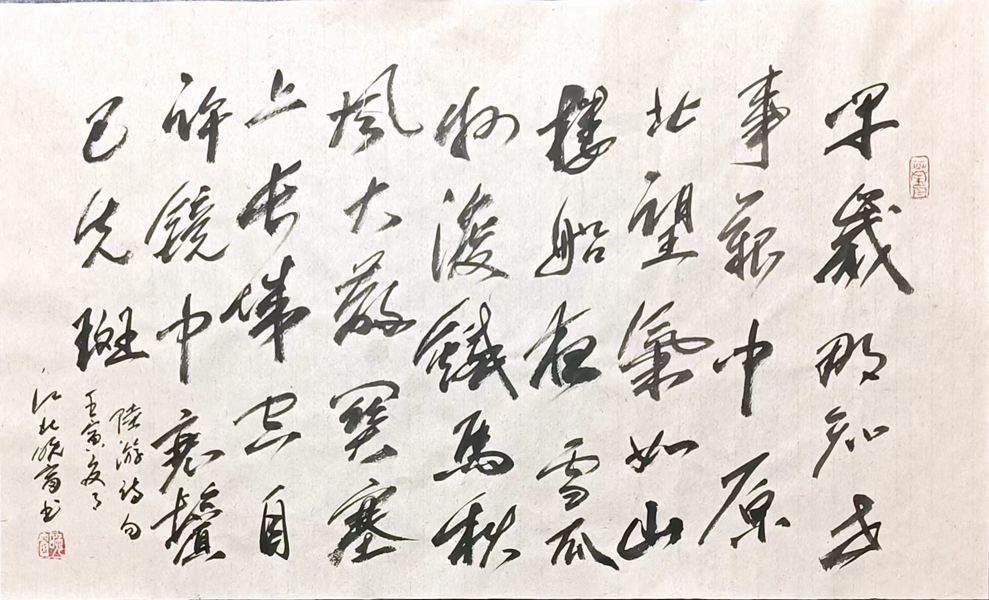 早歲那知世
事艱中原
北望氣如山
樓船夜雪瓜
州渡鐵馬秋
風大散関塞
上長城空自
許鏡中衰鬢
已先斑
陸游詩句
壬寅夏月
江北 书